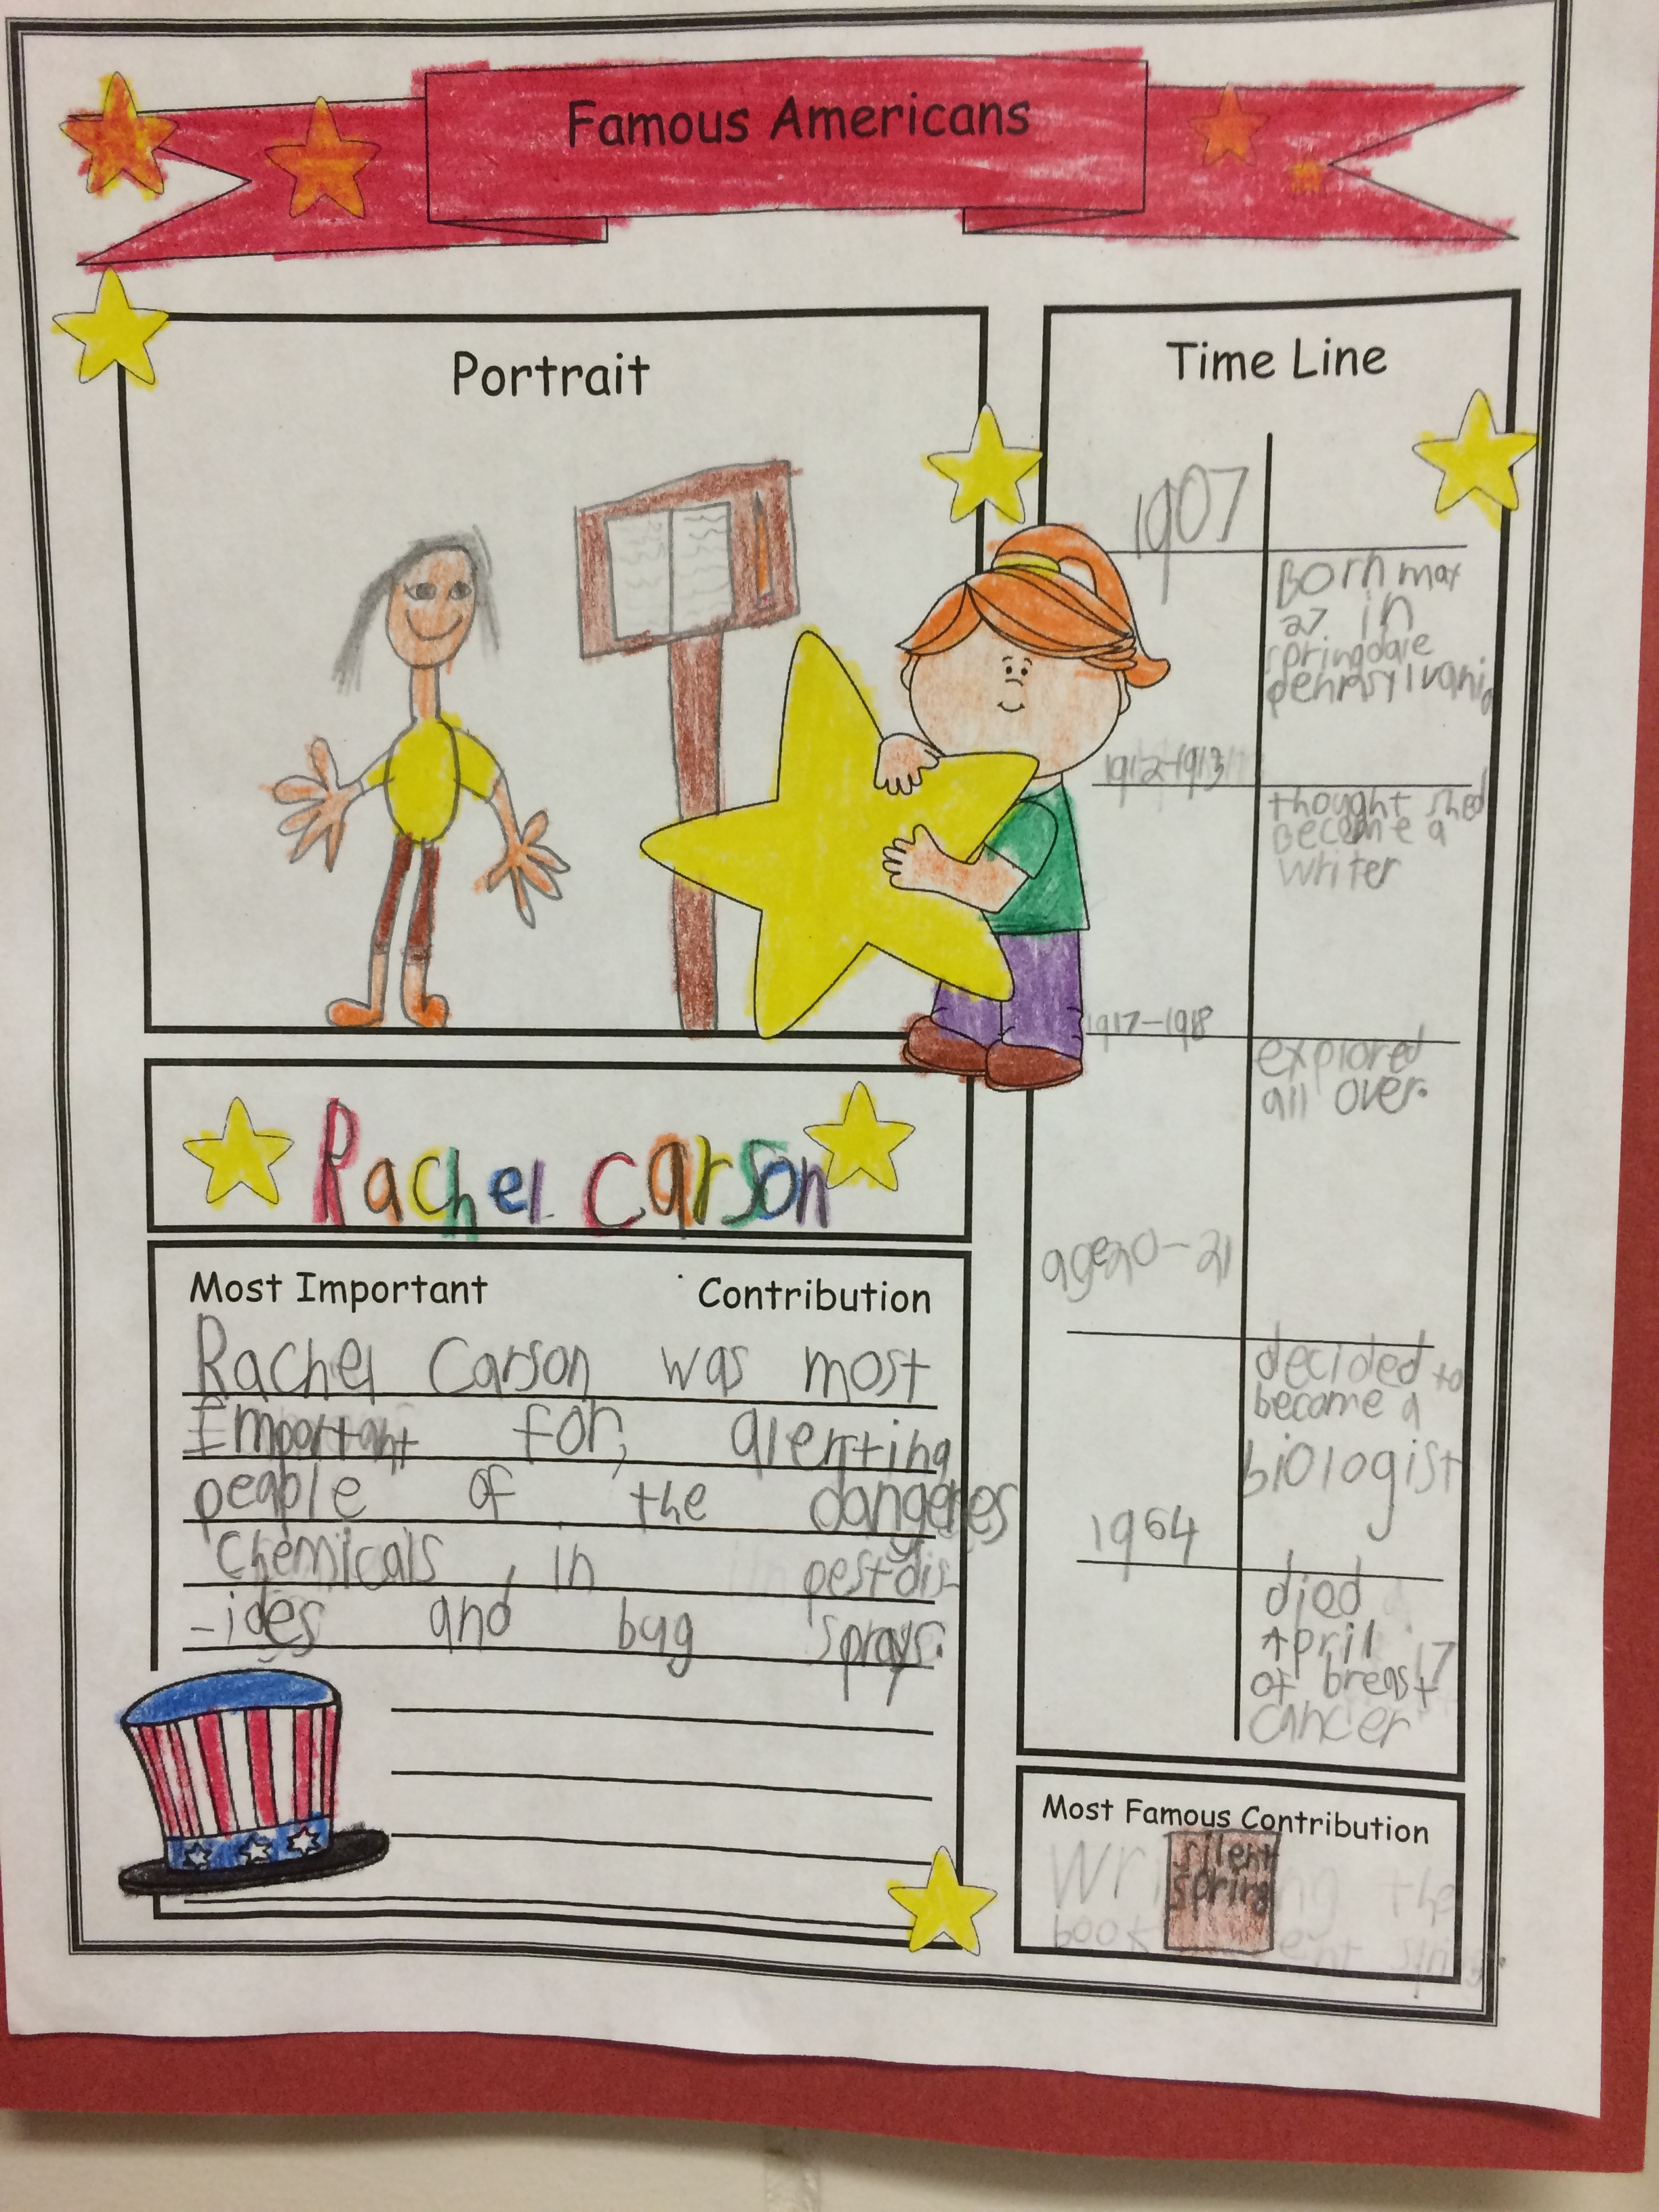 Famous Americans
Portrait
Rachel Carson
Most Important Contribution
Rachel Carson was most
Important for, alerting
people of the dangeres
chemicals, in pestdis-
-ides and bug sprays.
Time Line
1907
Born may
27 in
springdale
pennsylvania
1912-1913
thought shed
Become a
writer
1917-1918
explored
all over.
age20-21
decided to
become a
biologist
1964
died
April 17
of breast
cancer
Most Famous Contribution
silent
spring
the
book